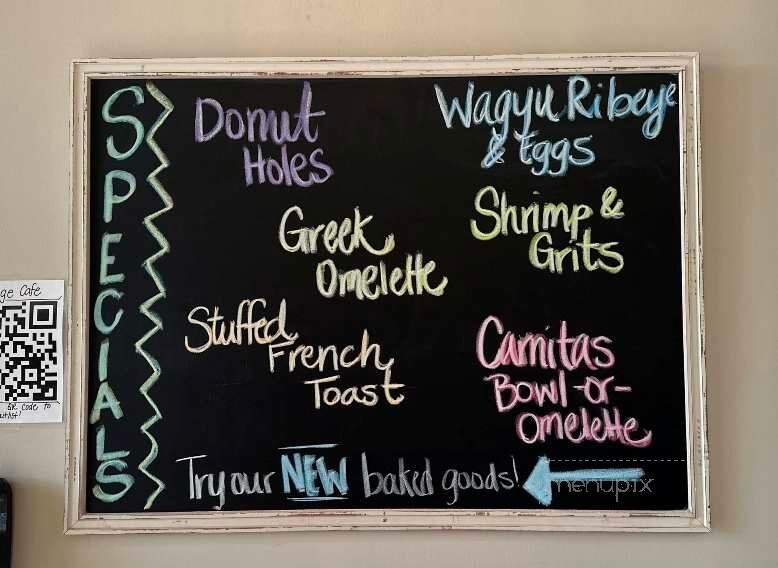 SPECIALS
Donut
Holes
Greek
Omelette
Stuffed
French
Toast
Wagyu Ribeye
& Eggs
Shrimp &
Grits
Carnitas
Bowl -or-
Omelette
Try our NEW baked goods!
menupix
ge Cafe
QR Code to